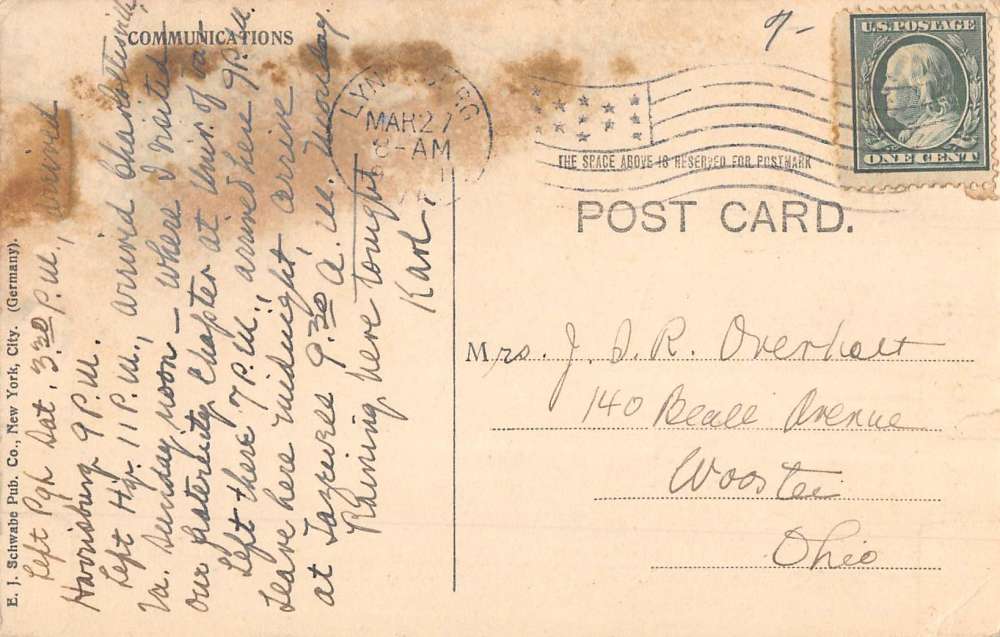 COMMUNICATIONS
Left Pgh Sat. 3.30 P.M., arrived
Harrisburg 9 P.M.
Left H'g. 11 P.M., arrived Charlottesville,
Va. Sunday noon – where I visited
our fraternity Chapter at Univ. of Va.
Left there 7 P.M., arrived here 9 P.M.
Leave here midnight, arrive
at Tazewell 9.30 A.M. Monday.
Raining here tonight
Karl.
E. J. Schwabe Pub. Co., New York, City. (Germany).
MAR 27
8-AM
THE SPACE ABOVE IS RESERVED FOR POSTMARK
U.S. POSTAGE
ONE CENT
POST CARD.
Mrs. J. S. R. Overholt
140 Beall Avenue
Wooster
Ohio